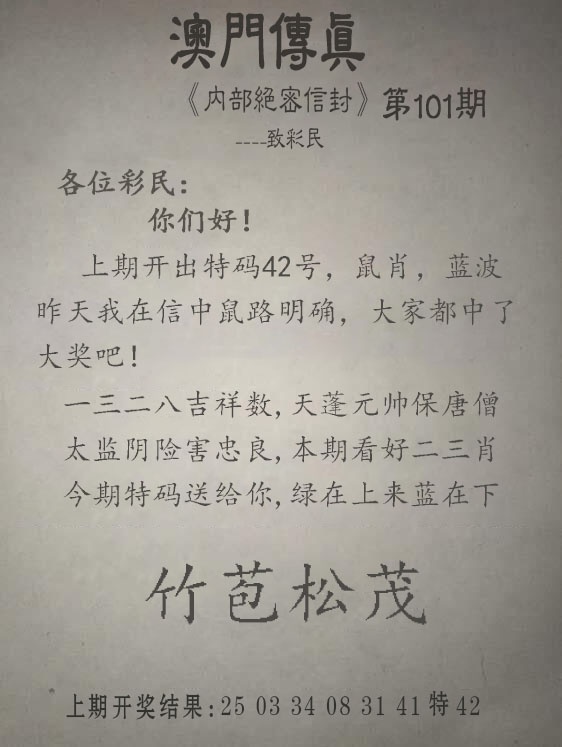 澳門傳眞
《内部絕密信封》第101期
----致彩民
各位彩民：
你们好！
上期开出特码42号，鼠肖，蓝波
昨天我在信中鼠路明确，大家都中了
大奖吧！
一三二八吉祥数,天蓬元帅保唐僧
太监阴险害忠良,本期看好二三肖
今期特码送给你,绿在上来蓝在下
竹苞松茂
上期开奖结果:25 03 34 08 31 41 特 42